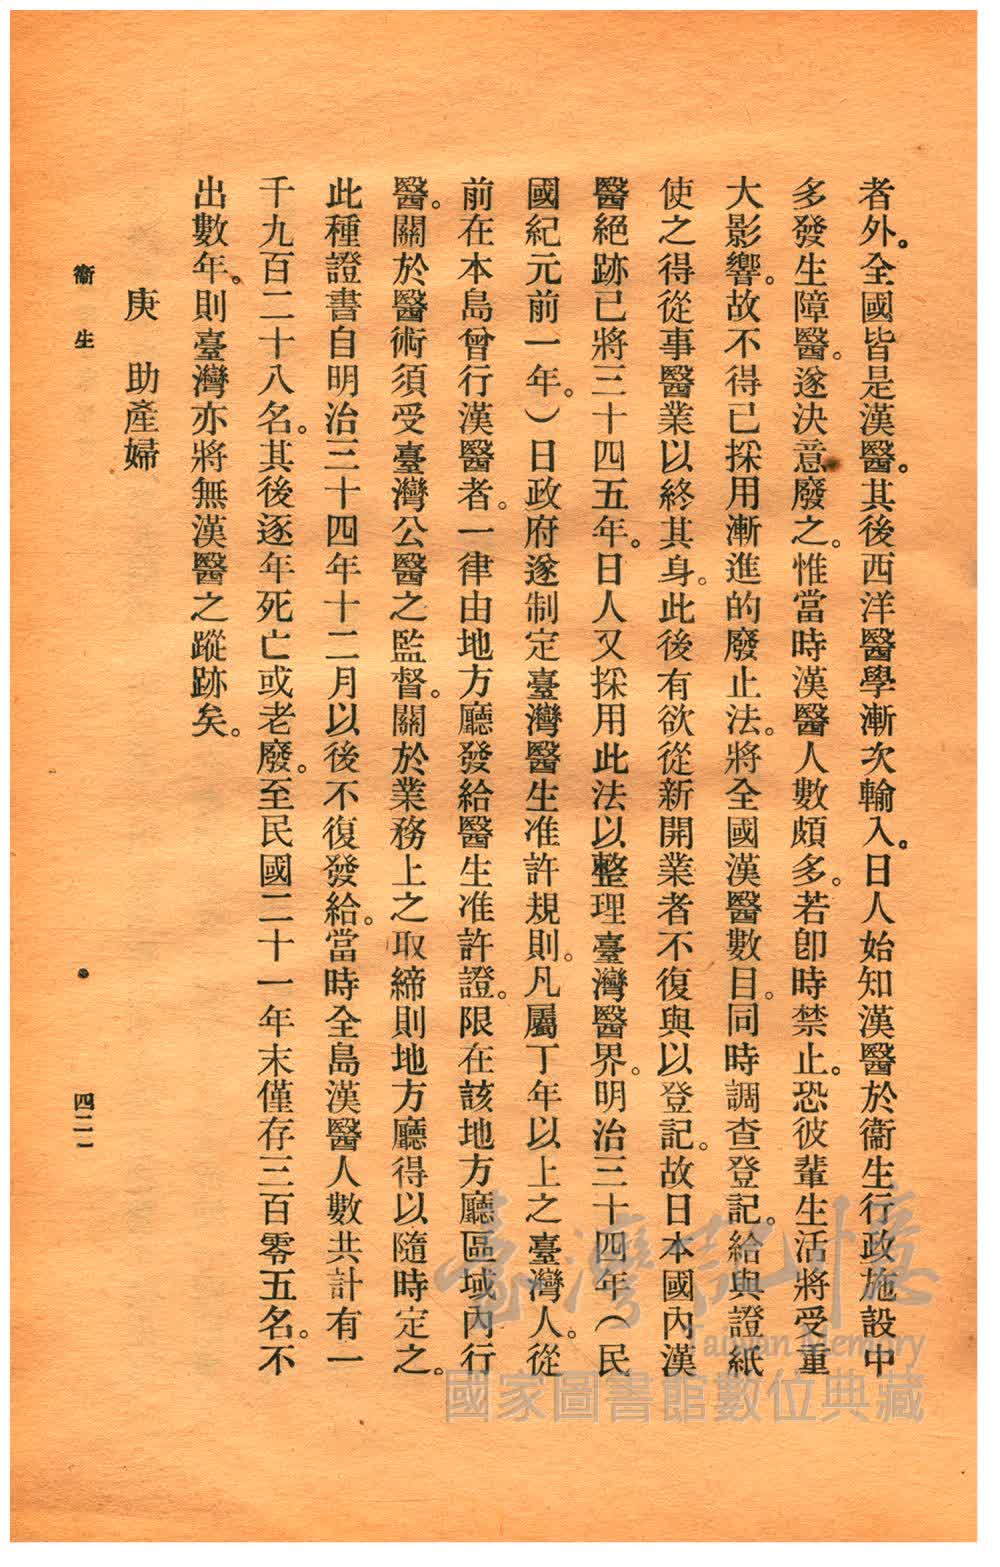 者外。全國皆是漢醫。其後西洋醫學漸次輸入。日人始知漢醫於衞生行政施設中
多發生障醫。遂決意廢之。惟當時漢醫人數頗多。若卽時禁止。恐彼輩生活將受重
大影響。故不得已採用漸進的廢止法。將全國漢醫數目。同時調查登記。給與證紙
使之得從事醫業以終其身。此後有欲從新開業者不復與以登記。故日本國內漢
醫絕跡已將三十四五年。日人又採用此法以整理臺灣醫界。明治三十四年（民
國紀元前一年。）日政府遂制定臺灣醫生准許規則。凡屬丁年以上之臺灣人。從
前在本島曾行漢醫者。一律由地方廳發給醫生准許證。限在該地方廳區域內行
醫。關於醫術須受臺灣公醫之監督。關於業務上之取締則地方廳得以隨時定之。
此種證書自明治三十四年十二月以後不復發給。當時全島漢醫人數共計有一
千九百二十八名。其後逐年死亡或老廢。至民國二十一年末僅存三百零五名。不
出數年。則臺灣亦將無漢醫之蹤跡矣。
庚　助產婦
衞生
四二一
臺灣記憶
Taiwan Memory
國家圖書館數位典藏